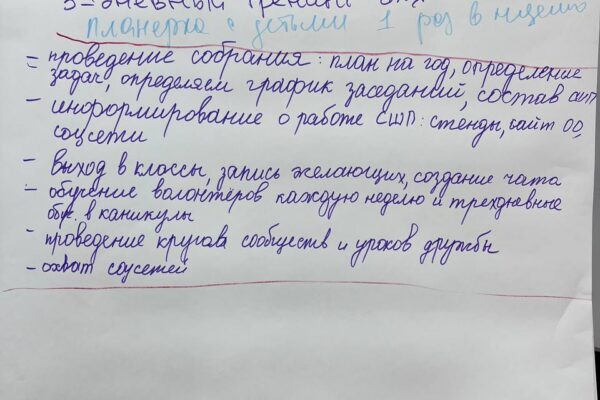 3-дневный тренинг
планерка с детьми 1 раз в неделю
= проведение собрания: план на год, определение
задач, определяем график заседаний, состав СШП
- информирование о работе СШП: стенды, сайт ОО,
соцсети
- выход в классы, запись желающих, создание чата
- обучение волонтёров каждую неделю и трехдневные
обуч. в каникулы
- проведение кругов сообществ и уроков дружбы
- охват соцсетей